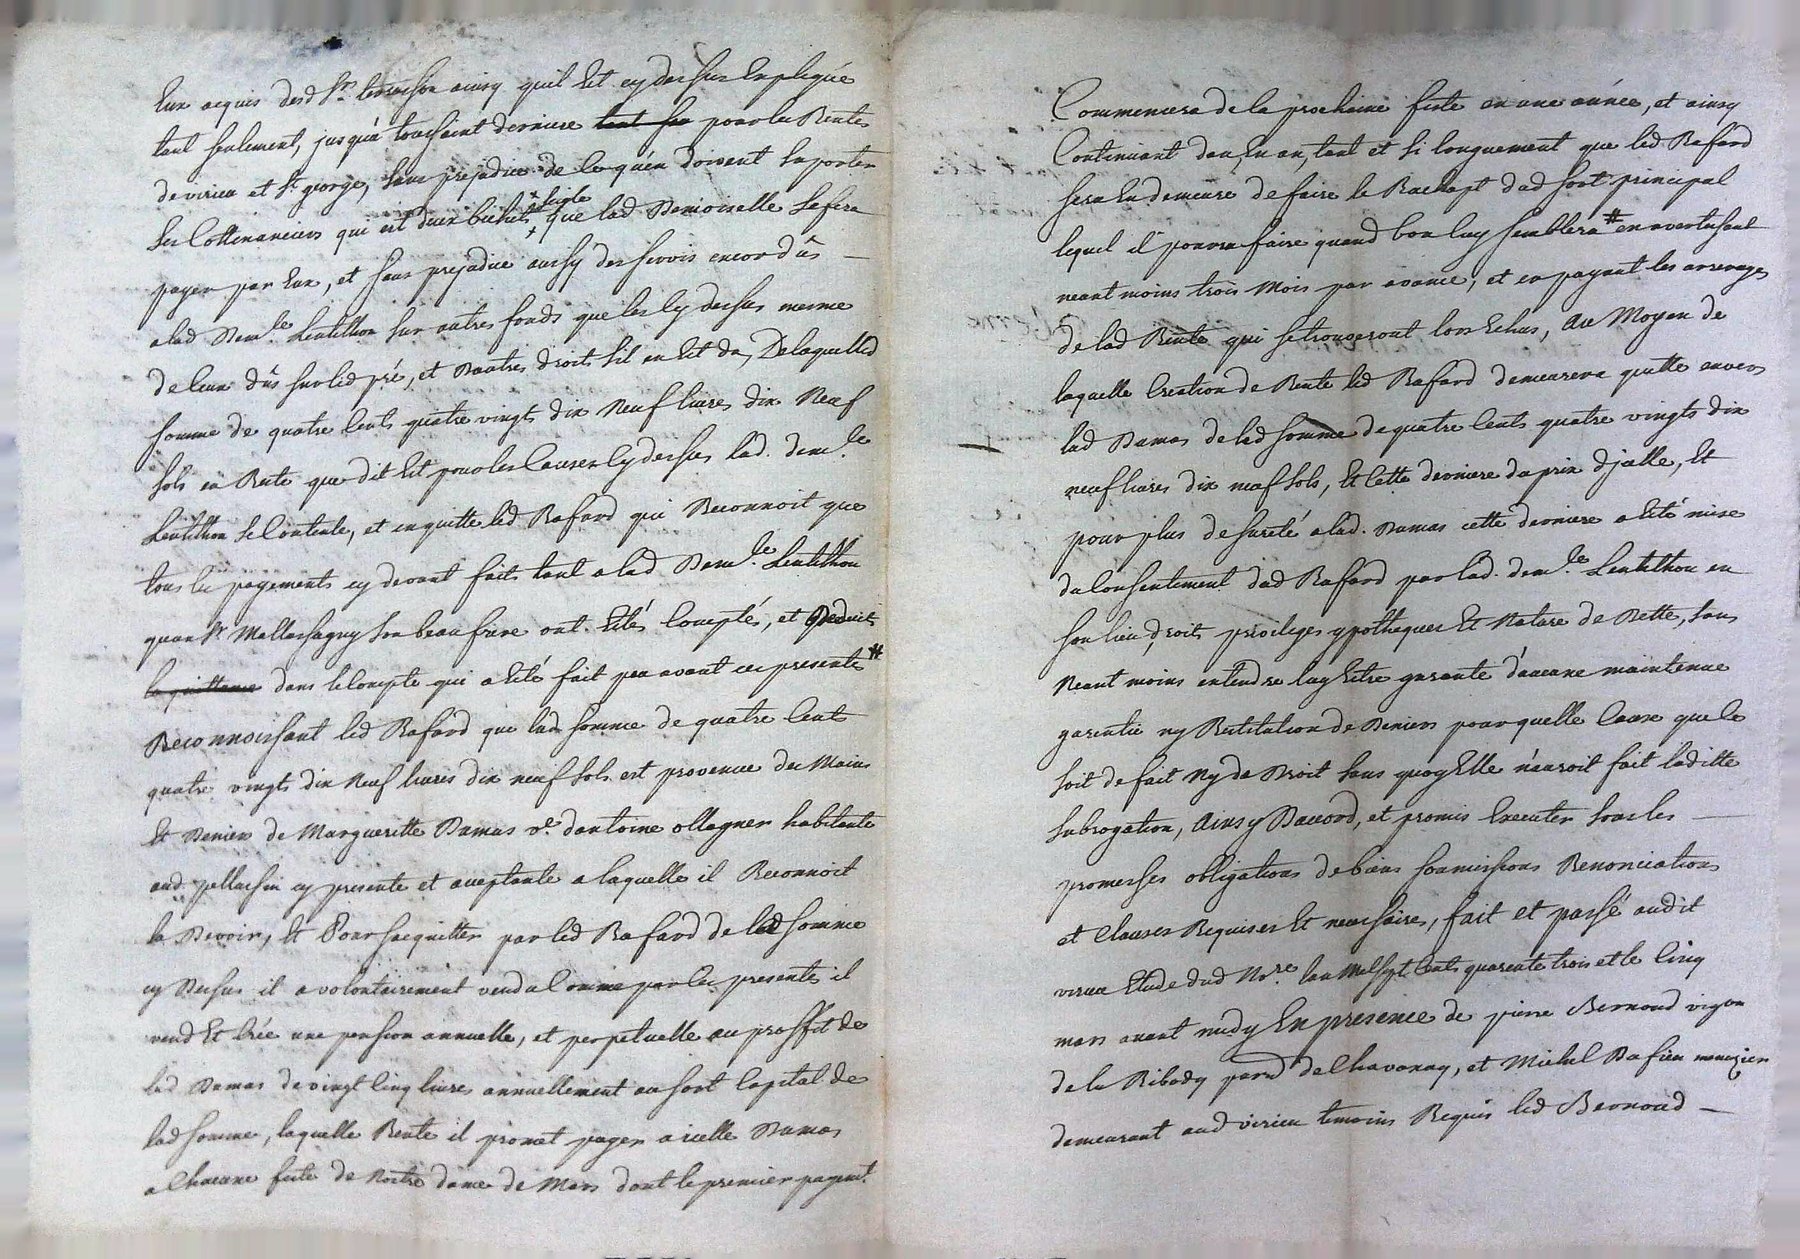 Eux acquis desd Sr terrasson ainsy quil Est cy dessus Expliquée
tant seulement, jusqu'a toussaint derniere tant sur pour les Rentes
de virieu et St george, sans prejudice de ce quen doivent suporter
Les Cottenanciers qui est deux bichets seigle que lad Demoiselle se fera
payer par Eux, et sans prejudice aussy des servis encor dûs
a lad Demlle Lentillon sur autres fonds que les Cy dessus mesme
de ceux dûs sur led pré, et Dautres droits sil en Est du, De laquelled
somme de quatre Cents quatre vingts dix Neuf livres dix Neuf
sols en Reste que dit Est pour les Causes Cy dessus lad. demlle
Lentillon se Contente, et en quitte led Rafard qui Reconnoit que
tous les payements cy devant faits tant a lad Demlle Lentillon
quau Sr Mallassagny son beau frere ont Étés Comptés, et deduits
la quittance dans le Compte qui a Eté fait peu avant ces presentes #
Reconnoissant led Rafard que lad somme de quatre Cents
quatre vingts dix Neuf livres dix neuf sols est provenue des Mains
Et Deniers de Margueritte Dumas ve. dantoine ollagner habitante
aud. pellussin cy presente et aceptante a laquelle il Reconnoit
la Devoir, Et Pour sacquitter par led Rafard de lad somme
cy Dessus il a volontairement vendu Comme par les presentes il
vend Et Crée une pension annuelle, et perpetuelle au proffit de
lad Dumas de vingt Cinq livres annuellement au sort Capital de
lad somme, laquelle Rente il promet payer a icelle Dumas
a Chacune feste de Nostre dame de Mars dont le premier payemt.
Commencera de la prochaine feste en une année, et ainsy
Continuant dan, En an, tant et si longuement que led Rafard
sera En demeure de faire le Rachapt dud sort principal
lequel il pourra faire quand bon luy semblera # en avertissant
neant moins trois Mois par avance, et en payant les arrerages
de lad Rente qui se trouveront lors Echus, Au Moyen de
laquelle Creation de Rente led Rafard demeurera quitte envers
lad Dumas de lad somme de quatre Cents quatre vingts dix
neuf livres dix neuf sols, Et Cette derniere du prix djcelle, Et
pour plus de sureté a lad. Dumas cette derniere a Eté mise
du Consentement dud Rafard par lad. demlle Lentillon en
son lieu, droits, privileges ypotheques Et Nature de Dette, sans
Neant moins entendre luy Estre garante d'aucune maintenue
garentie ny Restitution de Deniers pour quelle Cause que Ce
soit de fait Ny de Droit sans quoy Elle n'auroit fait laditte
subrogation, Ainsy Daccord, et promis Executer sous les
promesses obligations de biens soumissions Renonciations
et Clauses Requises Et necessaires, fait et passé audit
virieu Etude dud Nore. lan Mil sept Cents quarente trois et le Cinq
mars avant midy En presence de pierre Bernoud vigon
de la Ribody parr de Chavanay, et Michel Dufieu menuzier
demeurant aud virieu temoins Requis led Bernoud